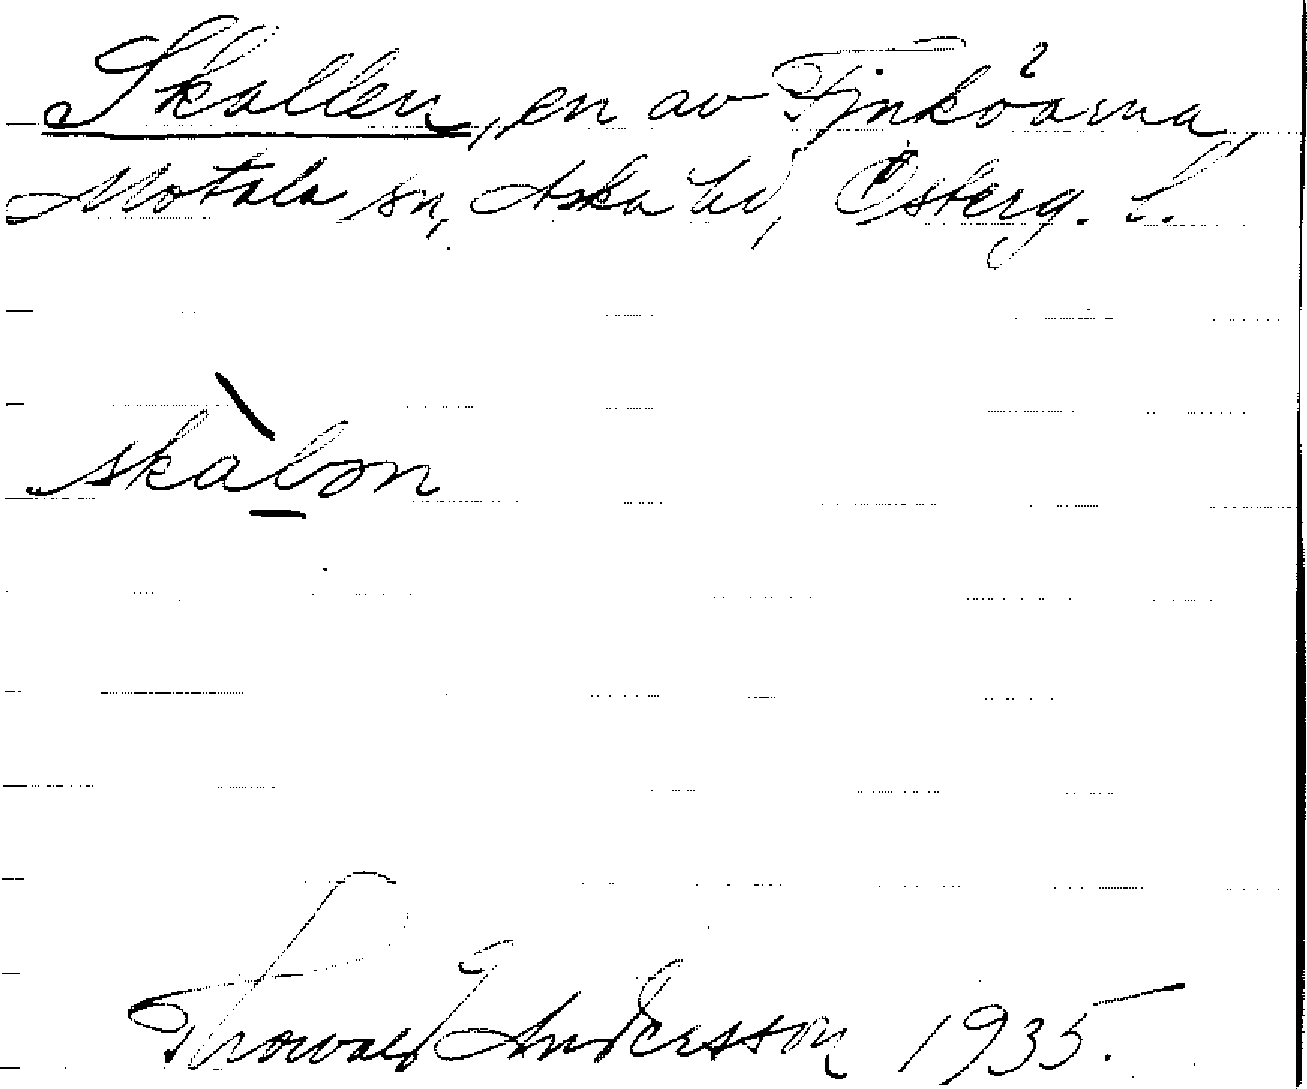 Skallen, en av Fjuköarna,
Motala sn, Aska hd, Österg. l.
skàlən
Thorvald Andersson 1935.